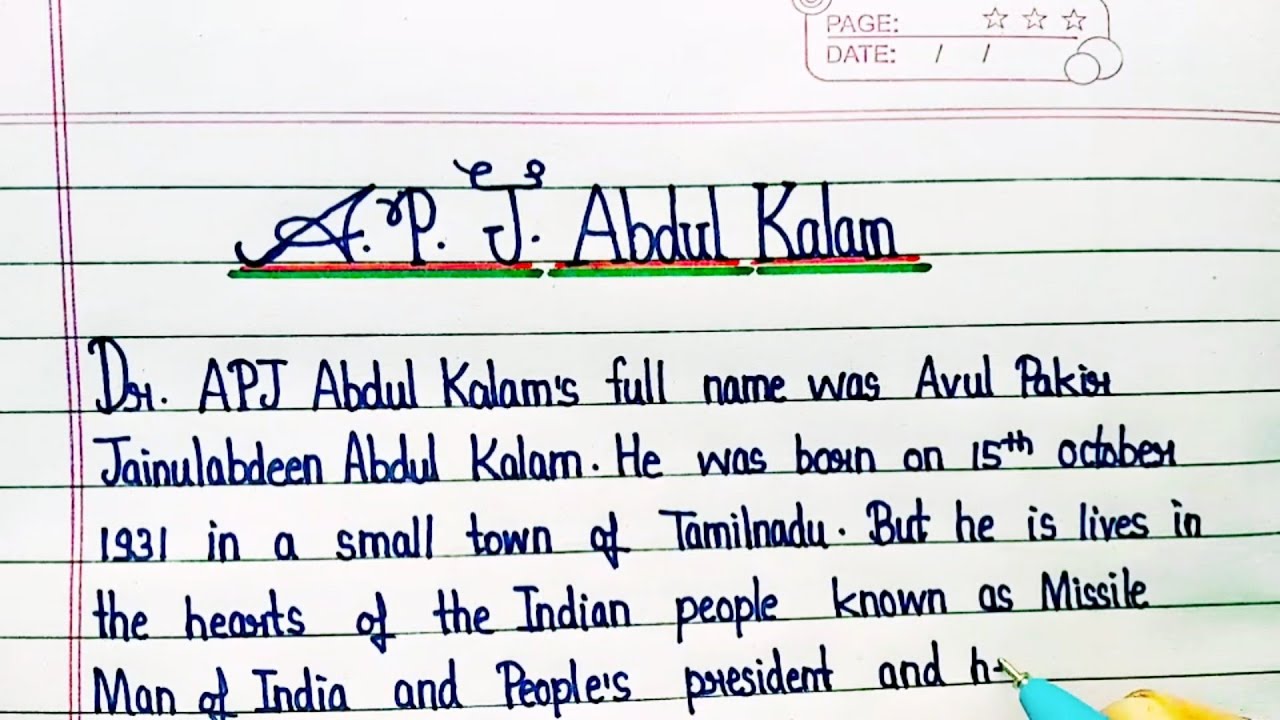 PAGE:
DATE: / /
A. P. J. Abdul Kalam
Dr. APJ Abdul Kalam's full name was Avul Pakir
Jainulabdeen Abdul Kalam. He was born on 15th october
1931 in a small town of Tamilnadu. But he is lives in
the hearts of the Indian people known as Missile
Man of India and People's president and h